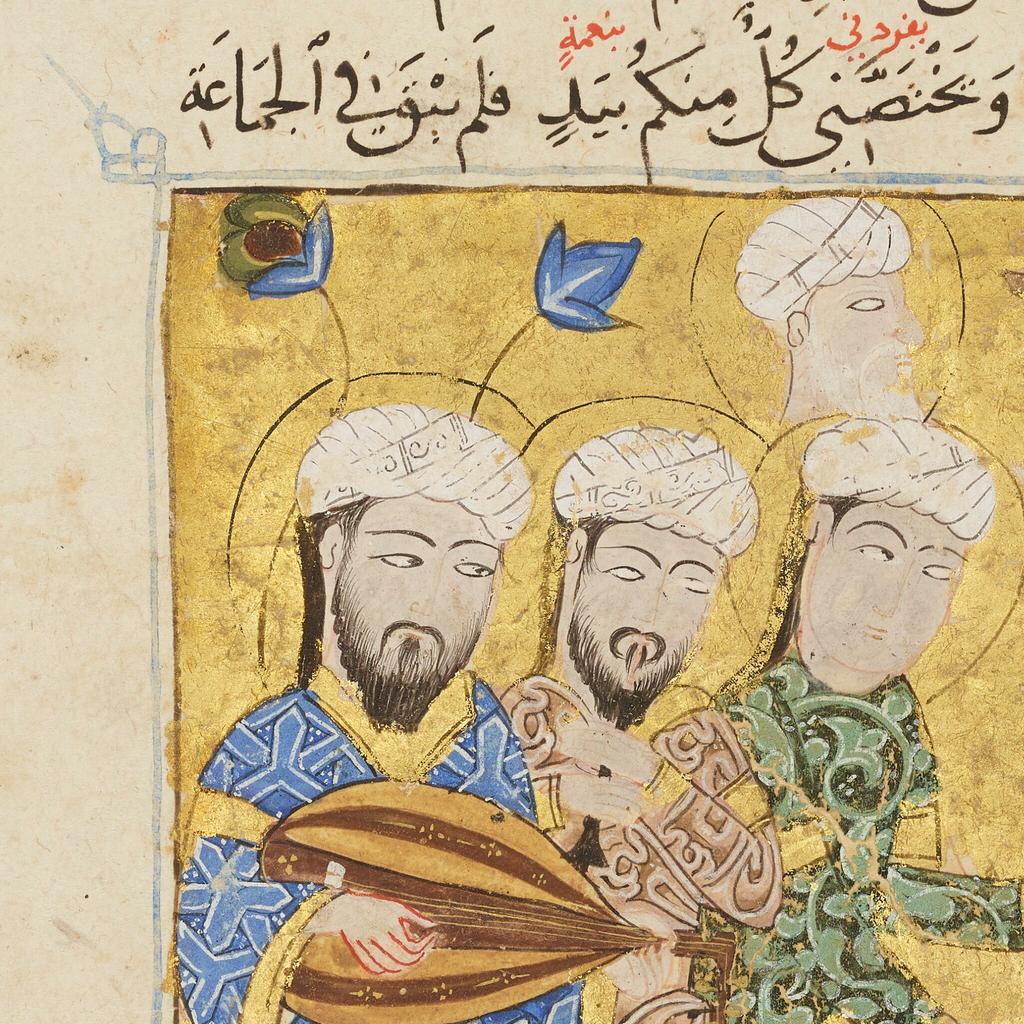 يفردني بنعمةٍ
وَيَخْتَصَّني كُلٌّ مِنكُم بِيَدٍ فَلَم يَبْقَ في ٱلجَمَاعَةِ